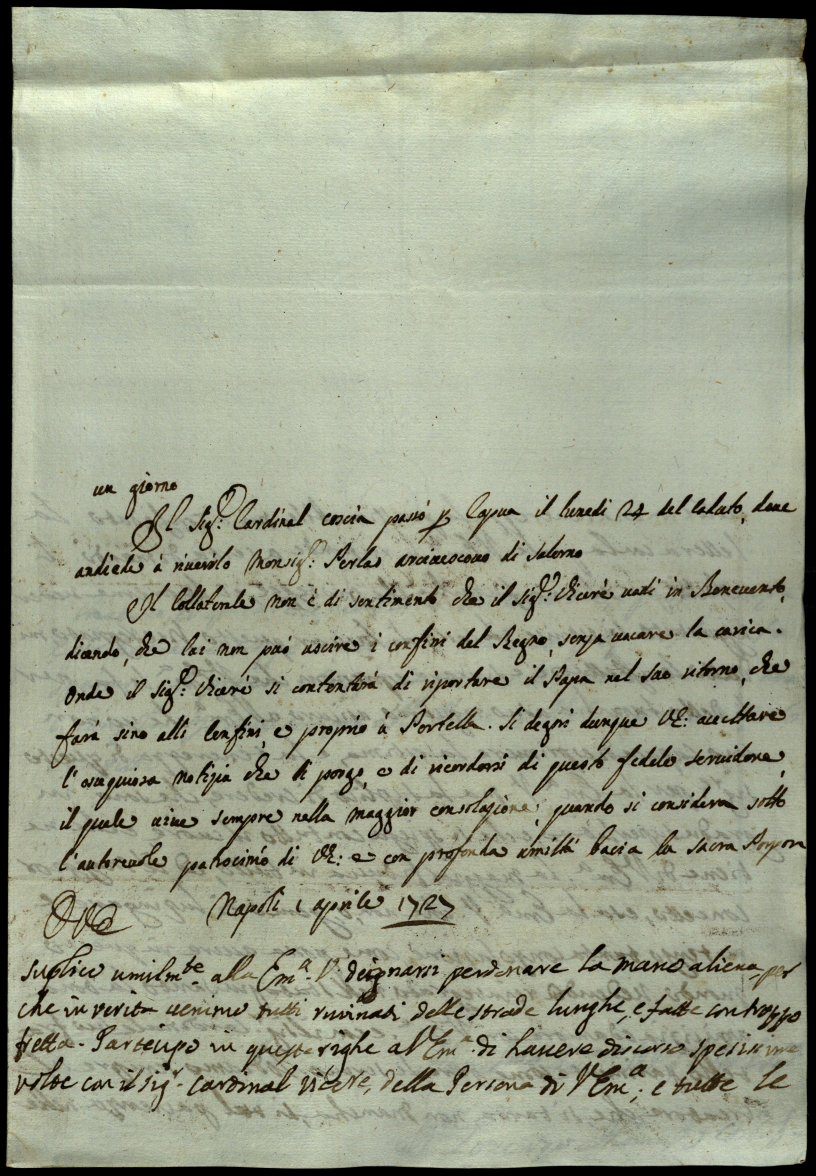 un giorno
Il Sig.r Cardinal Coscia passò p Capua il lunedi 24 del caduto, dove
andiede à riverirlo Monsig.r Perlas arcivescovo di Salerno
Il Collaterale non è di sentimento che il sig.r Vicerè vadi in Benevento,
dicendo, che lui non può uscire i confini del Regno, senza vacare la carica.
Onde il Sig.r Vicerè si contenterà di riportare il Papa nel suo ritorno, che
farà sino alli confini, e proprio à Portella. Si degni dunque VE: accettare
l'ossequiosa notizia che li porgo, e di ricordarsi di questo fedele servidore,
il quale vive sempre nella maggior consolazione, quando si considera sotto
l'autorevole patrocinio di VE: e con profonda umiltà bacia la sacra Porpora
DVE Napoli 1 aprile 1727
suplico umilmte. alla Em.a V. deignarsi perdonare la mano aliena per
che in verita venimo tutti ruvinati delle strade lunghe, e fatte con troppo
fretta. Partecipo in queste righe a V Em.a di havere discorso spesissime
volte con il sig.r Cardinal Vicere, della Persona di V Em.a; e tutte le